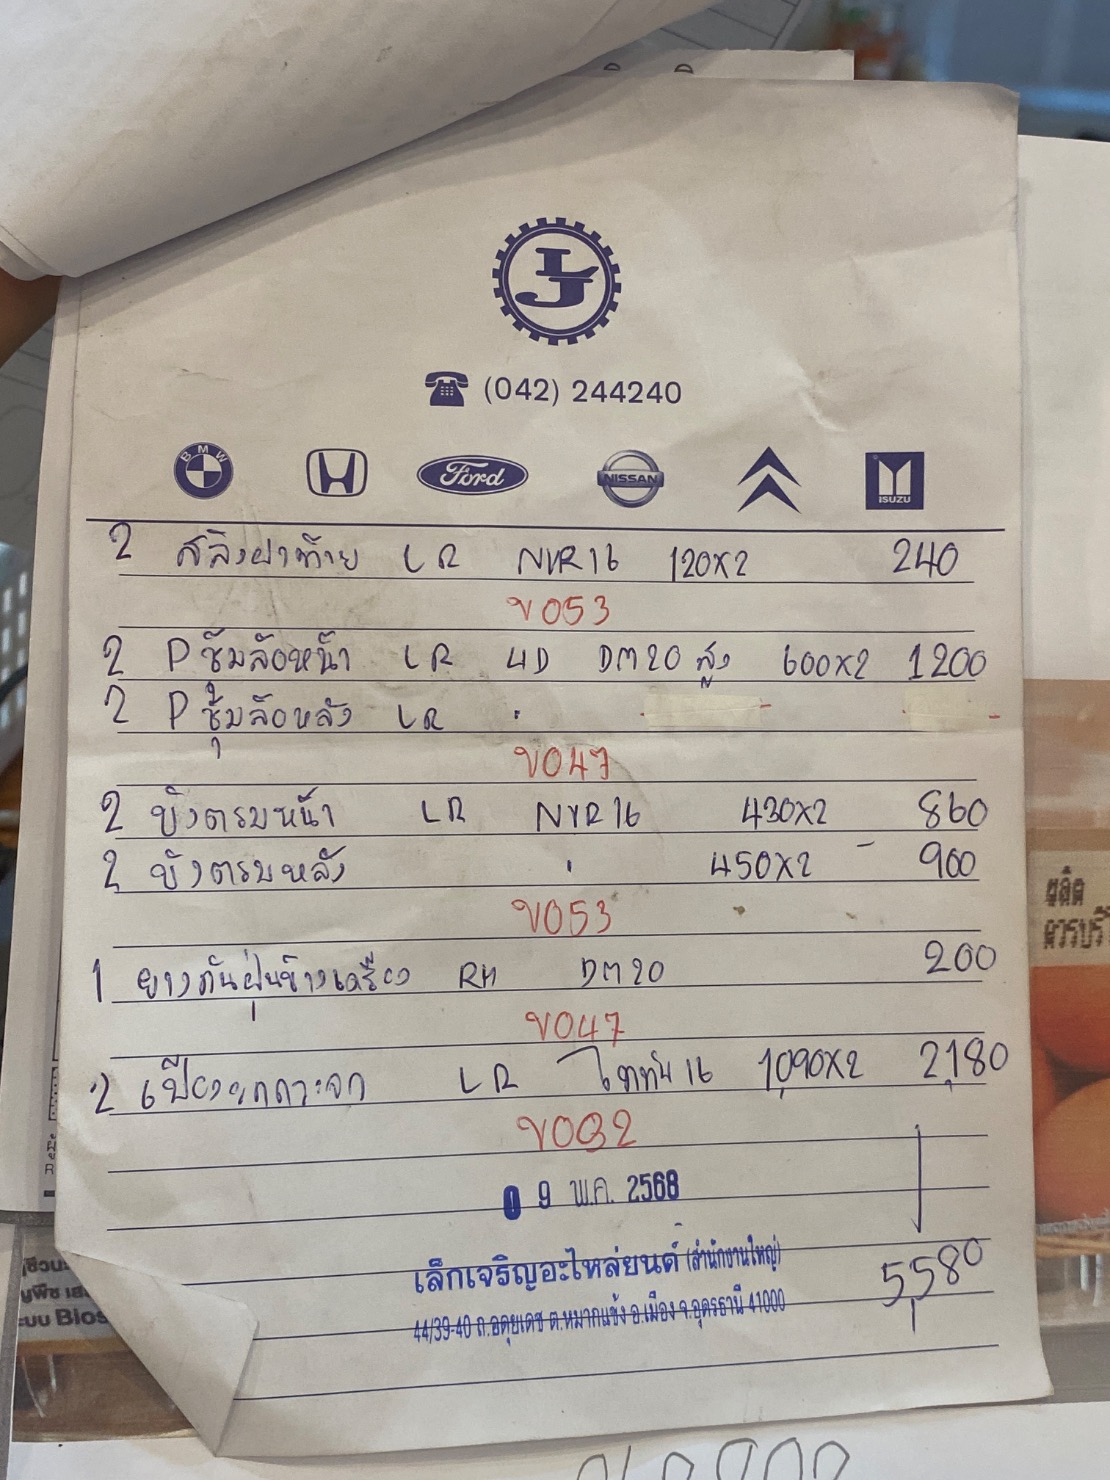 (042) 244240
BMW Ford NISSAN ISUZU
2 สลิงฝาท้าย LR NVR16 120x2 240
V053
2 P ซุ้มล้อหน้า LR 4D DM20 สูง 600x2 1200
2 P ซุ้มล้อหลัง LR
V047
2 บังตรมหน้า LR NVR16 430x2 860
2 บังตรมหลัง 450x2 900
V053
1 ยางกันฝุ่นข้างเครื่อง RH DM20 200
V047
2 LR ไททัน 16 1,090x2 2,180
9 พ.ค. 2568
เล็กเจริญอะไหล่ยนต์ (สำนักงานใหญ่)
5,580
44/39-40 ถ.อดุยเดช ต.หมากแข้ง อ.เมือง จ.อุดรธานี 41000
ผลิต